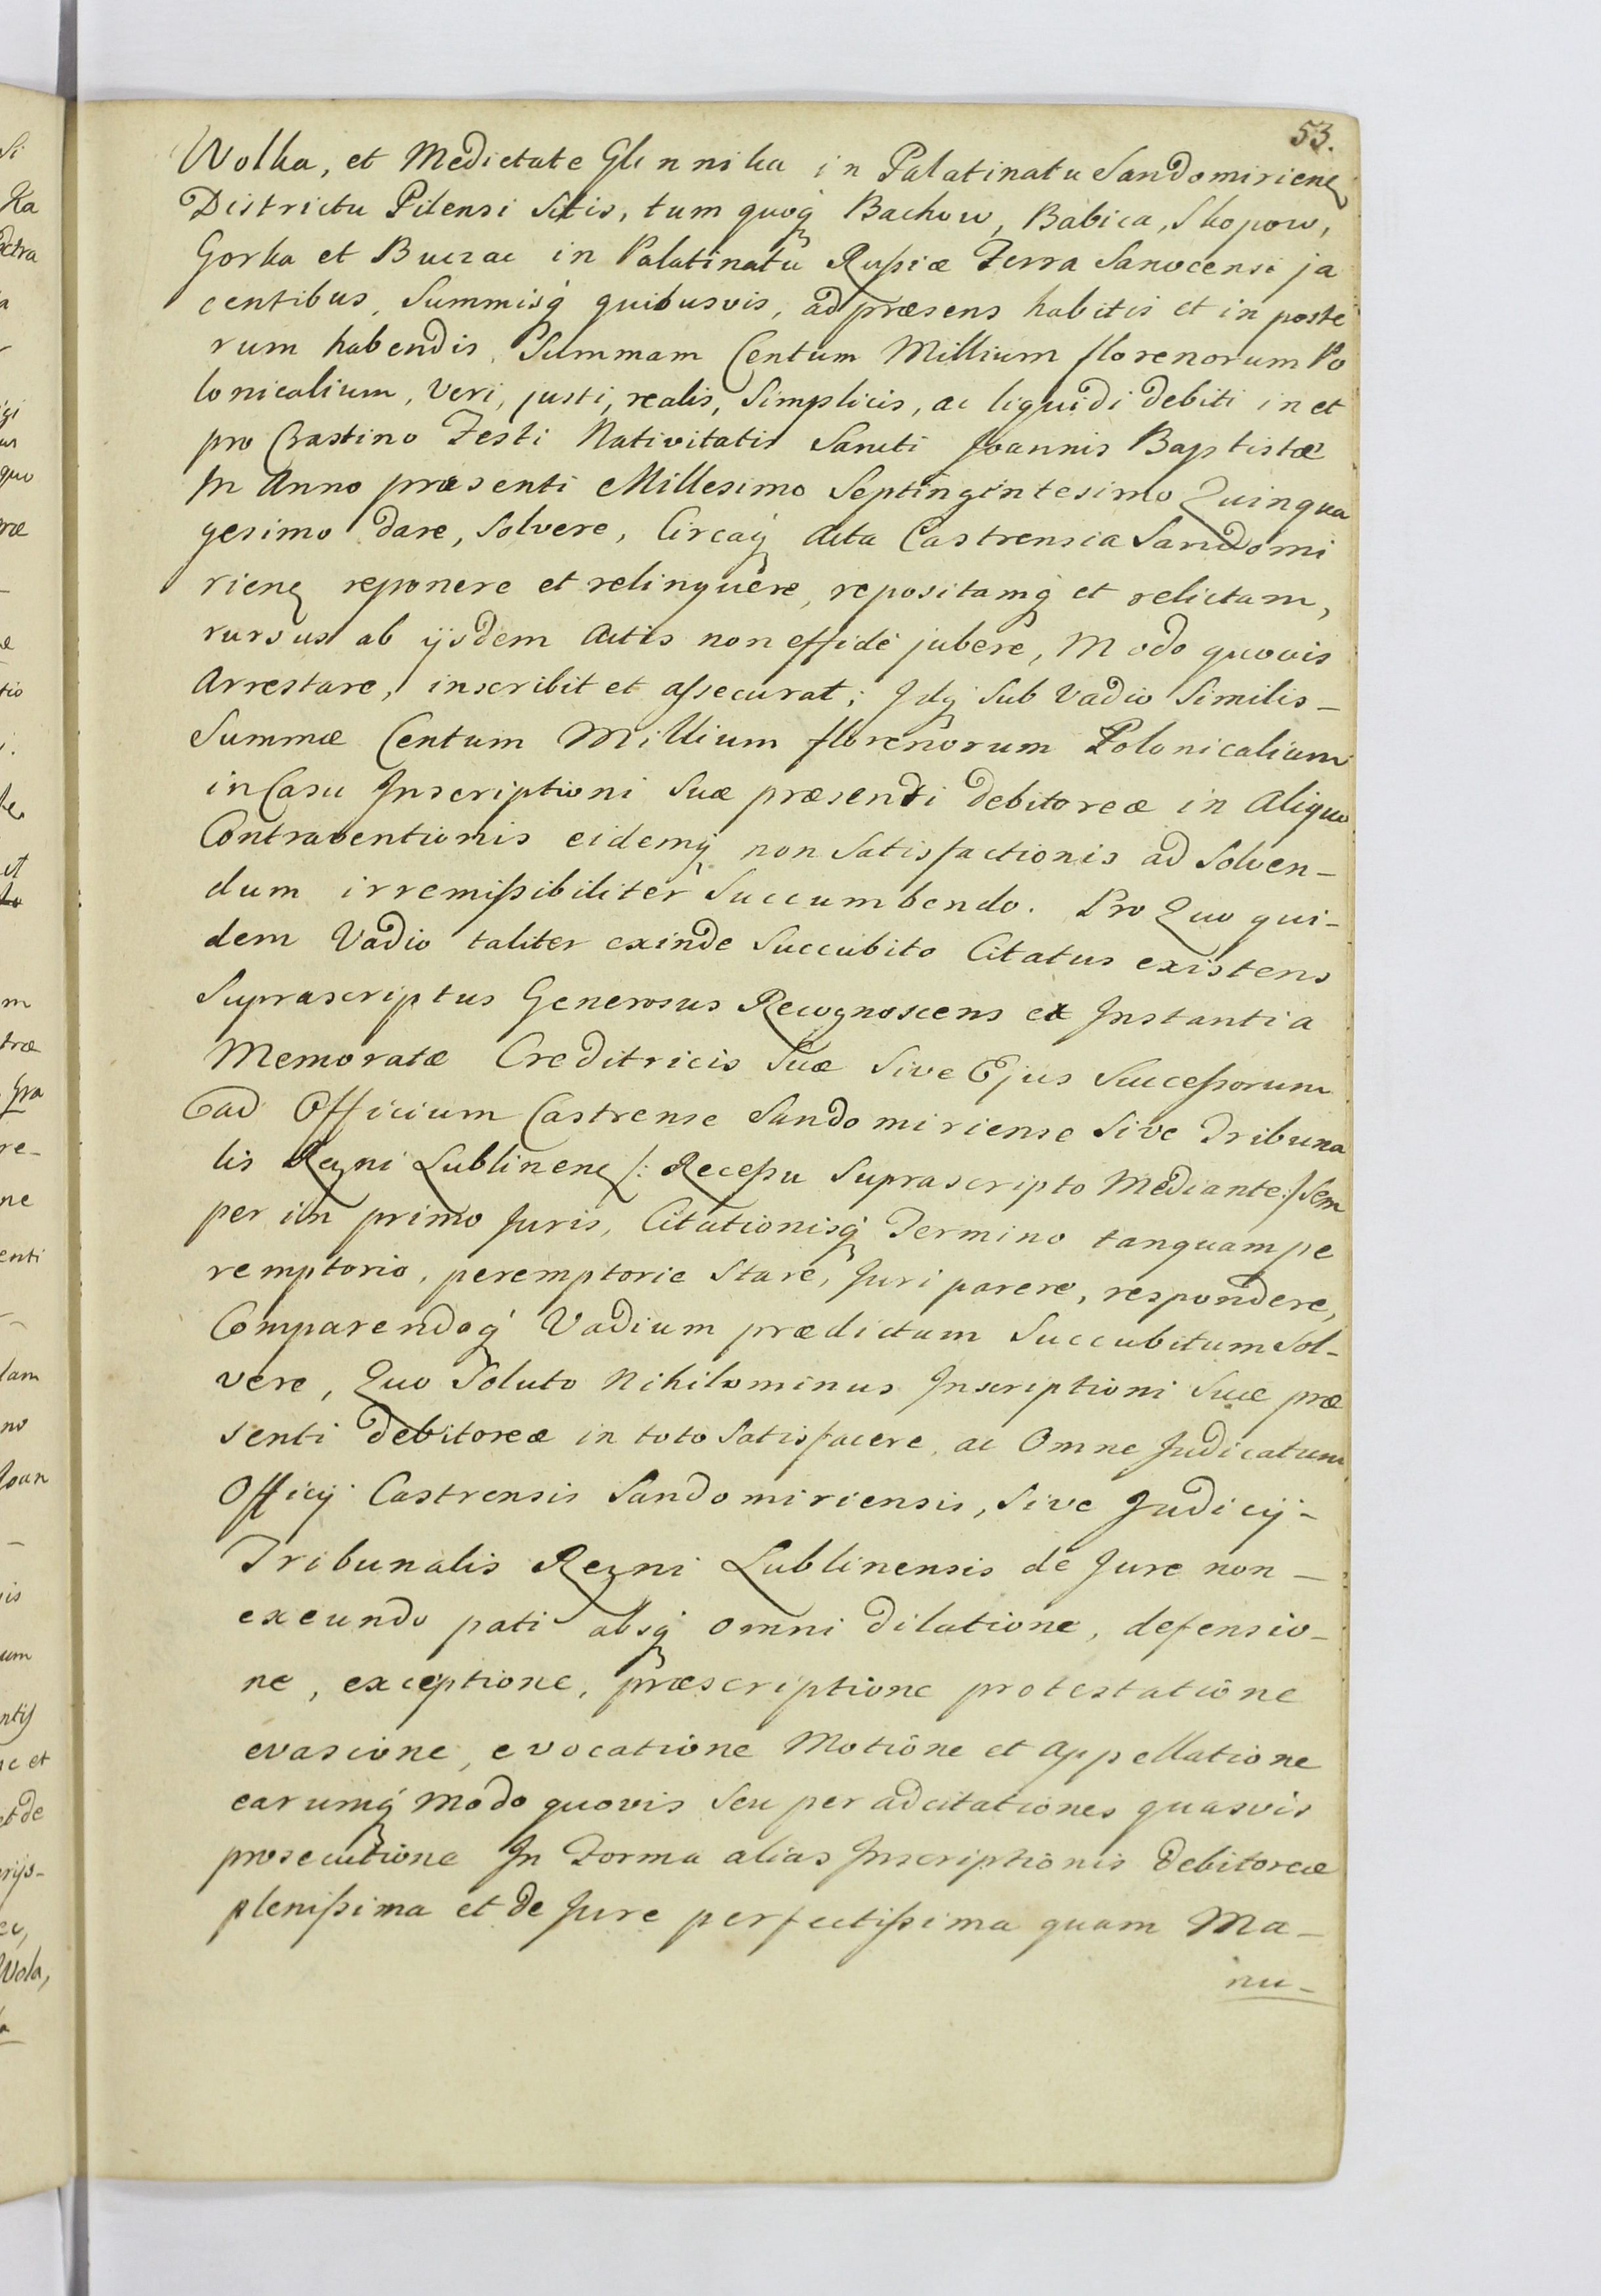 53.
Wolka, et Medietate Glinnika in Palatinatu Sandomirienꝫ
Districtu Pilensi Sitis, tum quoqꝫ Bachow, Babica, Skopow,
Gorka et Buczac in Palatinatu Rußiæ Terra Sanocensi ja
centibus, Summisqꝫ quibusvis, ad præsens habitis et in poste
rum habendis, Summam Centum Millium florenorum Po
lonicalium, Veri, justi, realis, Simplicis, ac liquidi debiti in et
pro Crastino Festi Nativitatis Sancti Joannis Baptistæ
In Anno præsenti Millesimo Septingintesimo Quinqua
gesimo dare, Solvere, Circaqꝫ Acta Castrensia Sandomi
rienꝫ reponere et relinquere, repositamqꝫ et relictam,
rursus ab ijsdem Actis non effide jubere, Modo quovis
Arrestare, inscribit et aſsecurat; Idqꝫ Sub Vadio Similis –
Summæ Centum Millium florenorum Polonicalium
in Casu Inscriptioni Suæ præsenti debitoreæ in Aliquo
Contraventionis eidemqꝫ non Satisfactionis ad Solven –
dum irremißibiliter Succumbendo. Pro Quo qui –
dem Vadio taliter exinde Succubito Citatus existens
Suprascriptus Generosus Recognoscens ex Instantia
Memoratæ Creditricis Suæ Sive Ejus Succeßorum
ad Officium Castrense Sandomiriense Sive Tribuna
lis Regni Lublinenꝫ /: Receßu Suprascripto Mediante :/ Sem
per in primo Juris, Citationisqꝫ Termino tanquam pe
remptorio, peremptorie Stare, Juri parere, respondere,
Comparendoqꝫ Vadium prædictum Succubitum Sol –
vere, Quo Soluto Nihilominus Inscriptioni Suæ præ
senti debitoreæ in toto Satisfacere, ac Omne Judicatum
Officij Castrensis Sandomiriensis, Sive Judicij –
Tribunalis Regni Lublinensis de Jure non –
exeundo pati absqꝫ omni dilatione, defensio –
ne, exceptione, præscriptione protestatione
evasione, evocatione Motione et Appellatione
earumqꝫ Modo quovis Seu per adcitationes quasvis
prosecutione In Forma alias Inscriptionis debitoreæ
plenißima et de Jure perfectißima quam Ma –
nu –